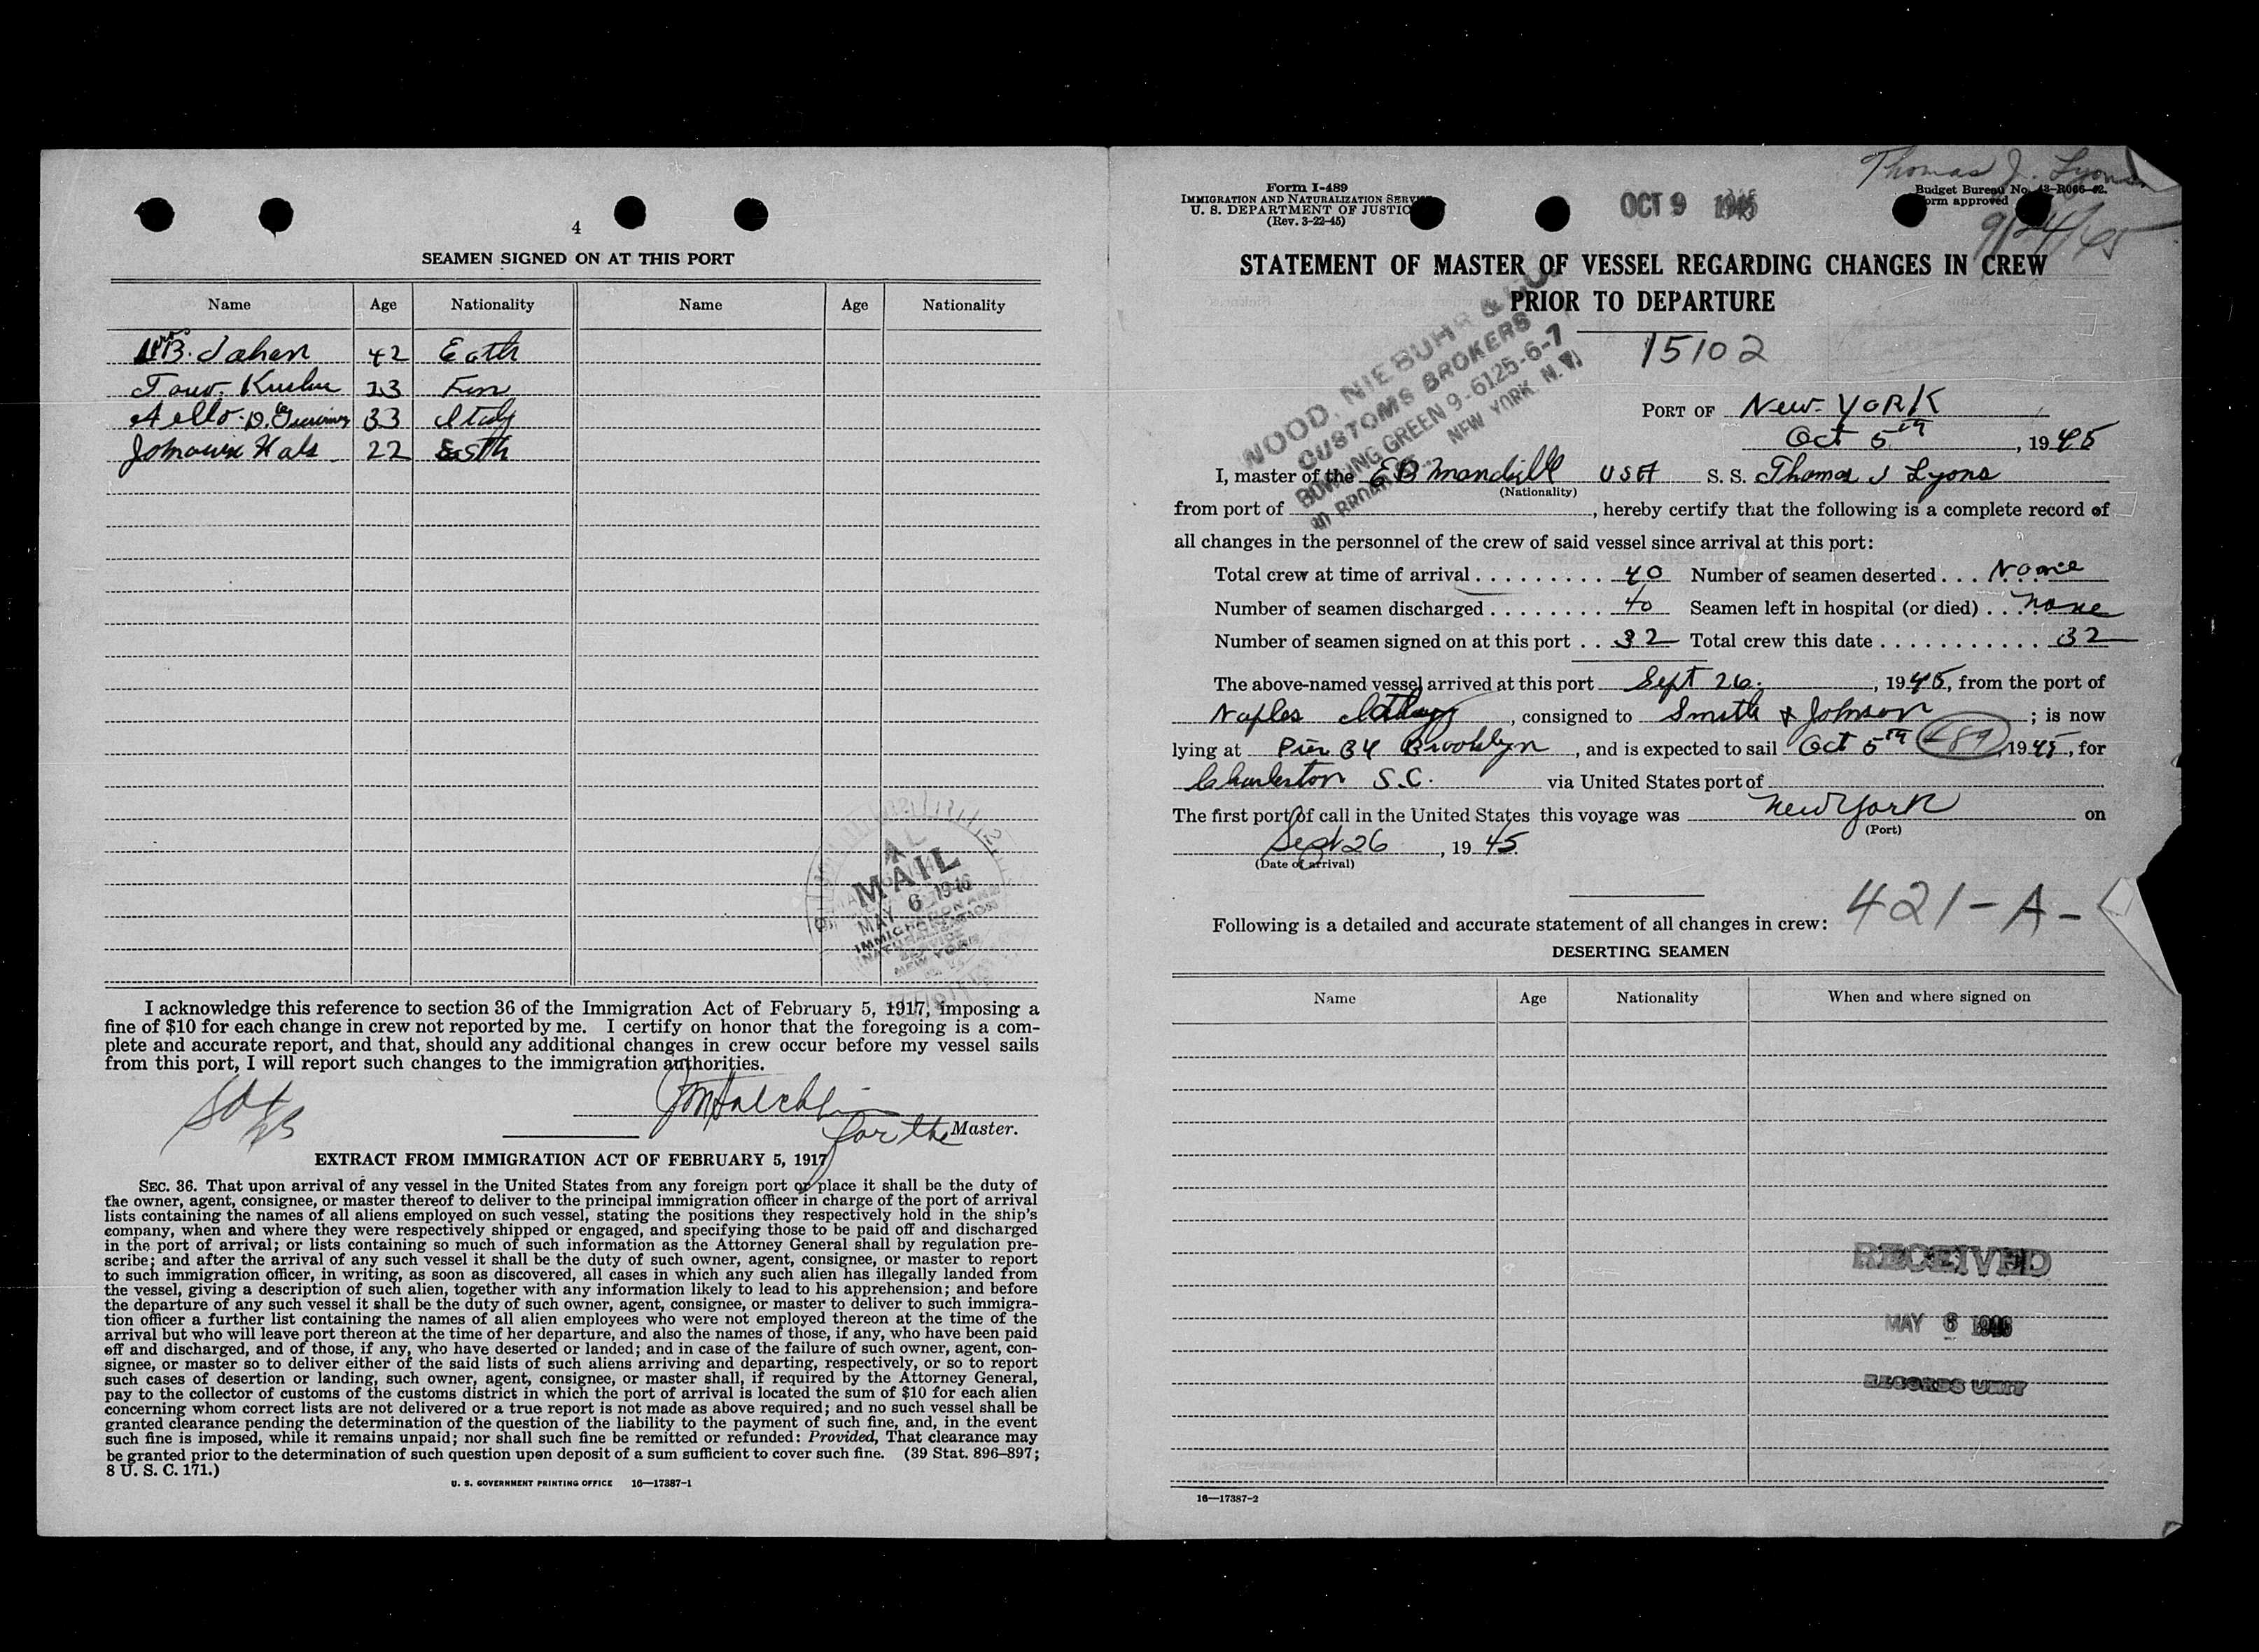 4
SEAMEN SIGNED ON AT THIS PORT
Name Age Nationality Name Age Nationality
42
23 Fin
33 Italy
22 Esth
I acknowledge this reference to section 36 of the Immigration Act of February 5, 1917, imposing a
fine of $10 for each change in crew not reported by me. I certify on honor that the foregoing is a com-
plete and accurate report, and that, should any additional changes in crew occur before my vessel sails
from this port, I will report such changes to the immigration authorities.
for the Master.
EXTRACT FROM IMMIGRATION ACT OF FEBRUARY 5, 1917
SEC. 36. That upon arrival of any vessel in the United States from any foreign port or place it shall be the duty of
the owner, agent, consignee, or master thereof to deliver to the principal immigration officer in charge of the port of arrival
lists containing the names of all aliens employed on such vessel, stating the positions they respectively hold in the ship's
company, when and where they were respectively shipped or engaged, and specifying those to be paid off and discharged
in the port of arrival; or lists containing so much of such information as the Attorney General shall by regulation pre-
scribe; and after the arrival of any such vessel it shall be the duty of such owner, agent, consignee, or master to report
to such immigration officer, in writing, as soon as discovered, all cases in which any such alien has illegally landed from
the vessel, giving a description of such alien, together with any information likely to lead to his apprehension; and before
the departure of any such vessel it shall be the duty of such owner, agent, consignee, or master to deliver to such immigra-
tion officer a further list containing the names of all alien employees who were not employed thereon at the time of the
arrival but who will leave port thereon at the time of her departure, and also the names of those, if any, who have been paid
off and discharged, and of those, if any, who have deserted or landed; and in case of the failure of such owner, agent, con-
signee, or master so to deliver either of the said lists of such aliens arriving and departing, respectively, or so to report
such cases of desertion or landing, such owner, agent, consignee, or master shall, if required by the Attorney General,
pay to the collector of customs of the customs district in which the port of arrival is located the sum of $10 for each alien
concerning whom correct lists are not delivered or a true report is not made as above required; and no such vessel shall be
granted clearance pending the determination of the question of the liability to the payment of such fine, and, in the event
such fine is imposed, while it remains unpaid; nor shall such fine be remitted or refunded: Provided, That clearance may
be granted prior to the determination of such question upon deposit of a sum sufficient to cover such fine. (39 Stat. 896–897;
8 U. S. C. 171.)
U. S. GOVERNMENT PRINTING OFFICE 16—17387-1
MAIL
MAY 6 1946
IMMIGRATION
NEW YORK
Thomas J. Lyons
9/24/45
Form I-489
IMMIGRATION AND NATURALIZATION
U. S. DEPARTMENT OF JUSTIC
(Rev. 3-22-45)
OCT 9 1945
Budget Bureau No. 43-R066-42.
orm approved
STATEMENT OF MASTER OF VESSEL REGARDING CHANGES IN CREW
PRIOR TO DEPARTURE
15102
WOOD, NIEBUHR & CO.
CUSTOMS BROKERS
BOWLING GREEN 9-6125-6-7
NEW YORK. N. Y.
PORT OF New York
Oct 5th, 1945
I, master of the E B Mandvill USA S. S. Thomas J Lyons
(Nationality)
from port of , hereby certify that the following is a complete record of
all changes in the personnel of the crew of said vessel since arrival at this port:
Total crew at time of arrival 40 Number of seamen deserted None
Number of seamen discharged 40 Seamen left in hospital (or died) None
Number of seamen signed on at this port 32 Total crew this date 32
The above-named vessel arrived at this port Sept 26, 1945, from the port of
Naples Italy, consigned to Smith & Johnson; is now
lying at Pier 34 Brooklyn, and is expected to sail Oct 5th 489 1945, for
Charleston S.C. via United States port of
The first port of call in the United States this voyage was New York on
(Port)
Sept 26, 1945
(Date of arrival)
421-A-
Following is a detailed and accurate statement of all changes in crew:
DESERTING SEAMEN
Name Age Nationality When and where signed on
RECEIVED
MAY 6 1946
RECORDS UNIT
16—17387-2